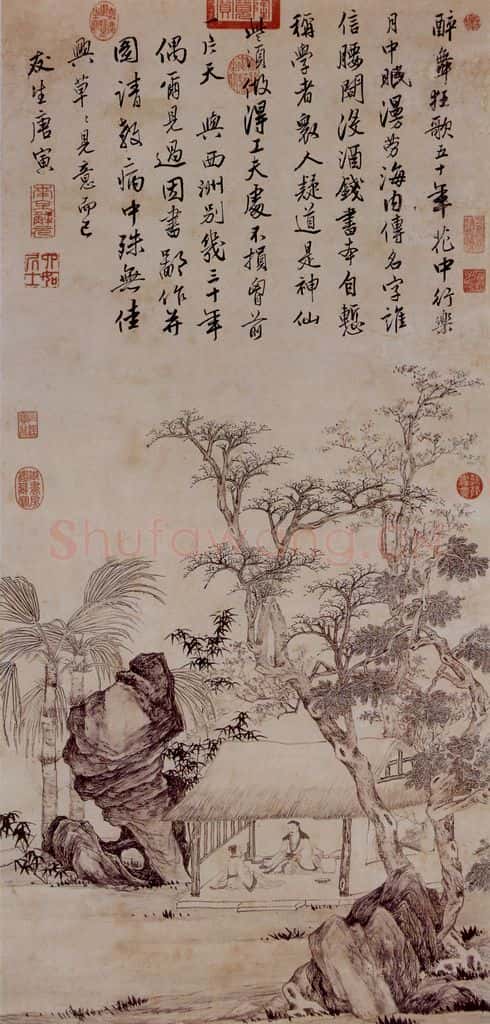 醉舞狂歌五十年花中行樂
月中眠漫勞海内傳名字誰
信腰間没酒錢書本自慙
稱學者衆人疑道是神仙
些須做得工夫處不損胷前
一片天 與西洲别幾三十年
偶爾見過因書鄙作并
圖請教病中殊無佳
興草〻見意而已
友生唐寅
南京解元
六如居士
Shufawang.CN